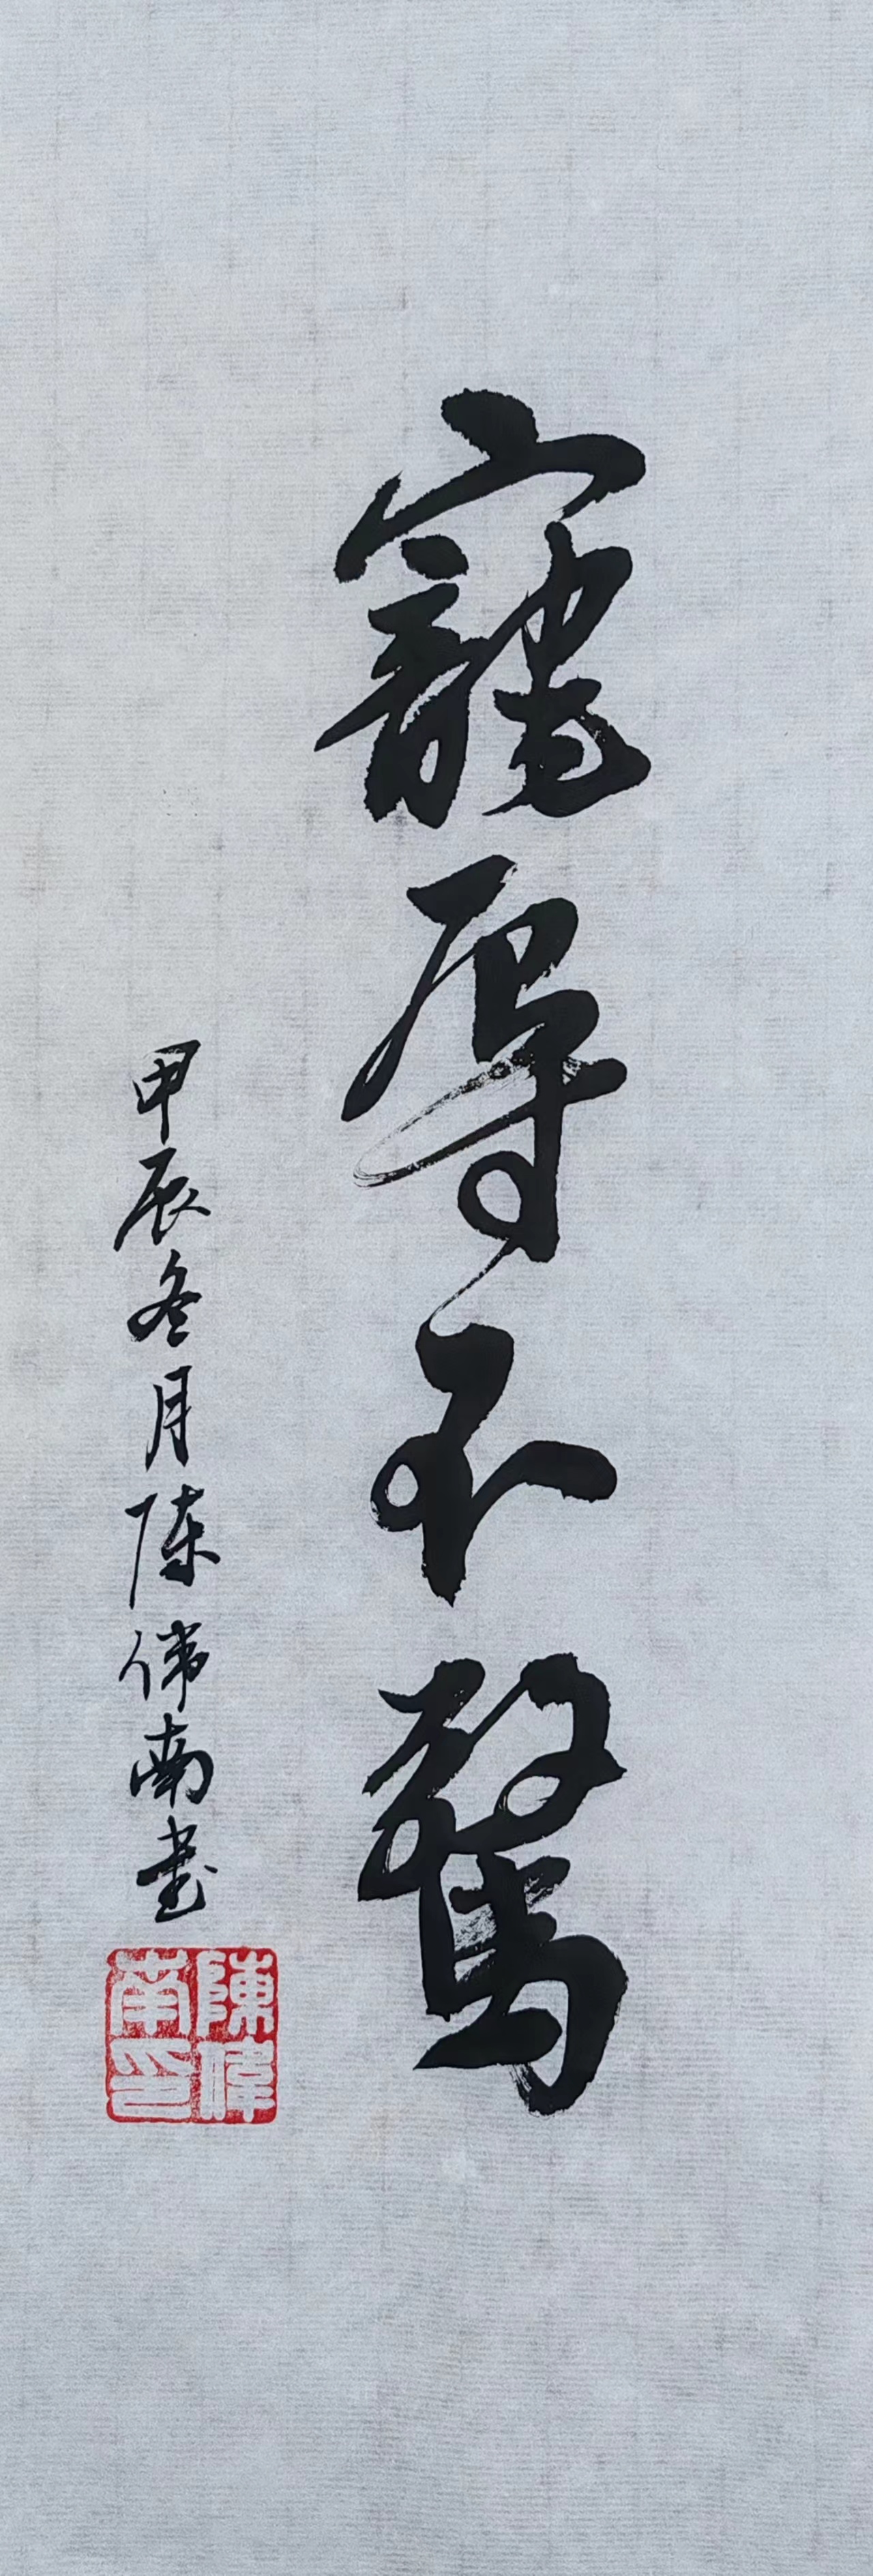 寵辱不驚
甲辰冬月陈伟南书
陳偉南印